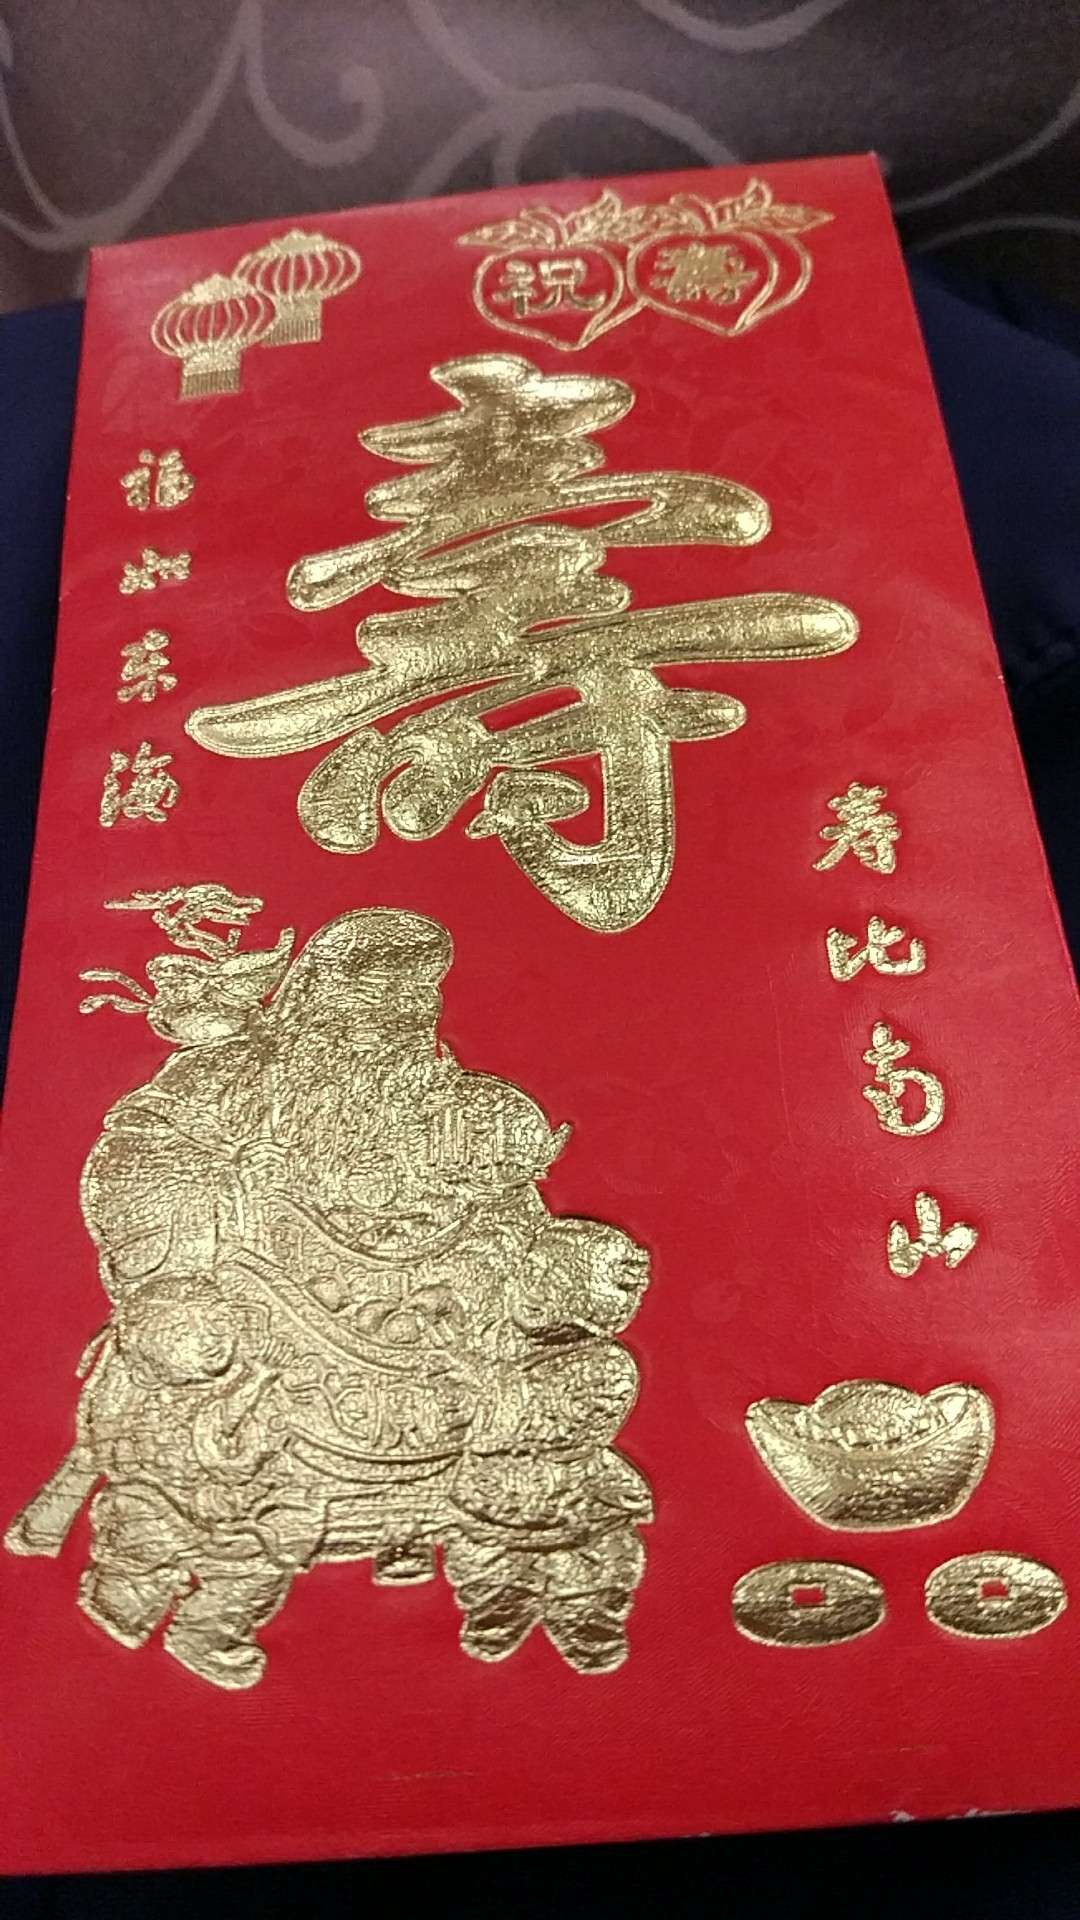 祝壽
壽
福如东海
寿比南山